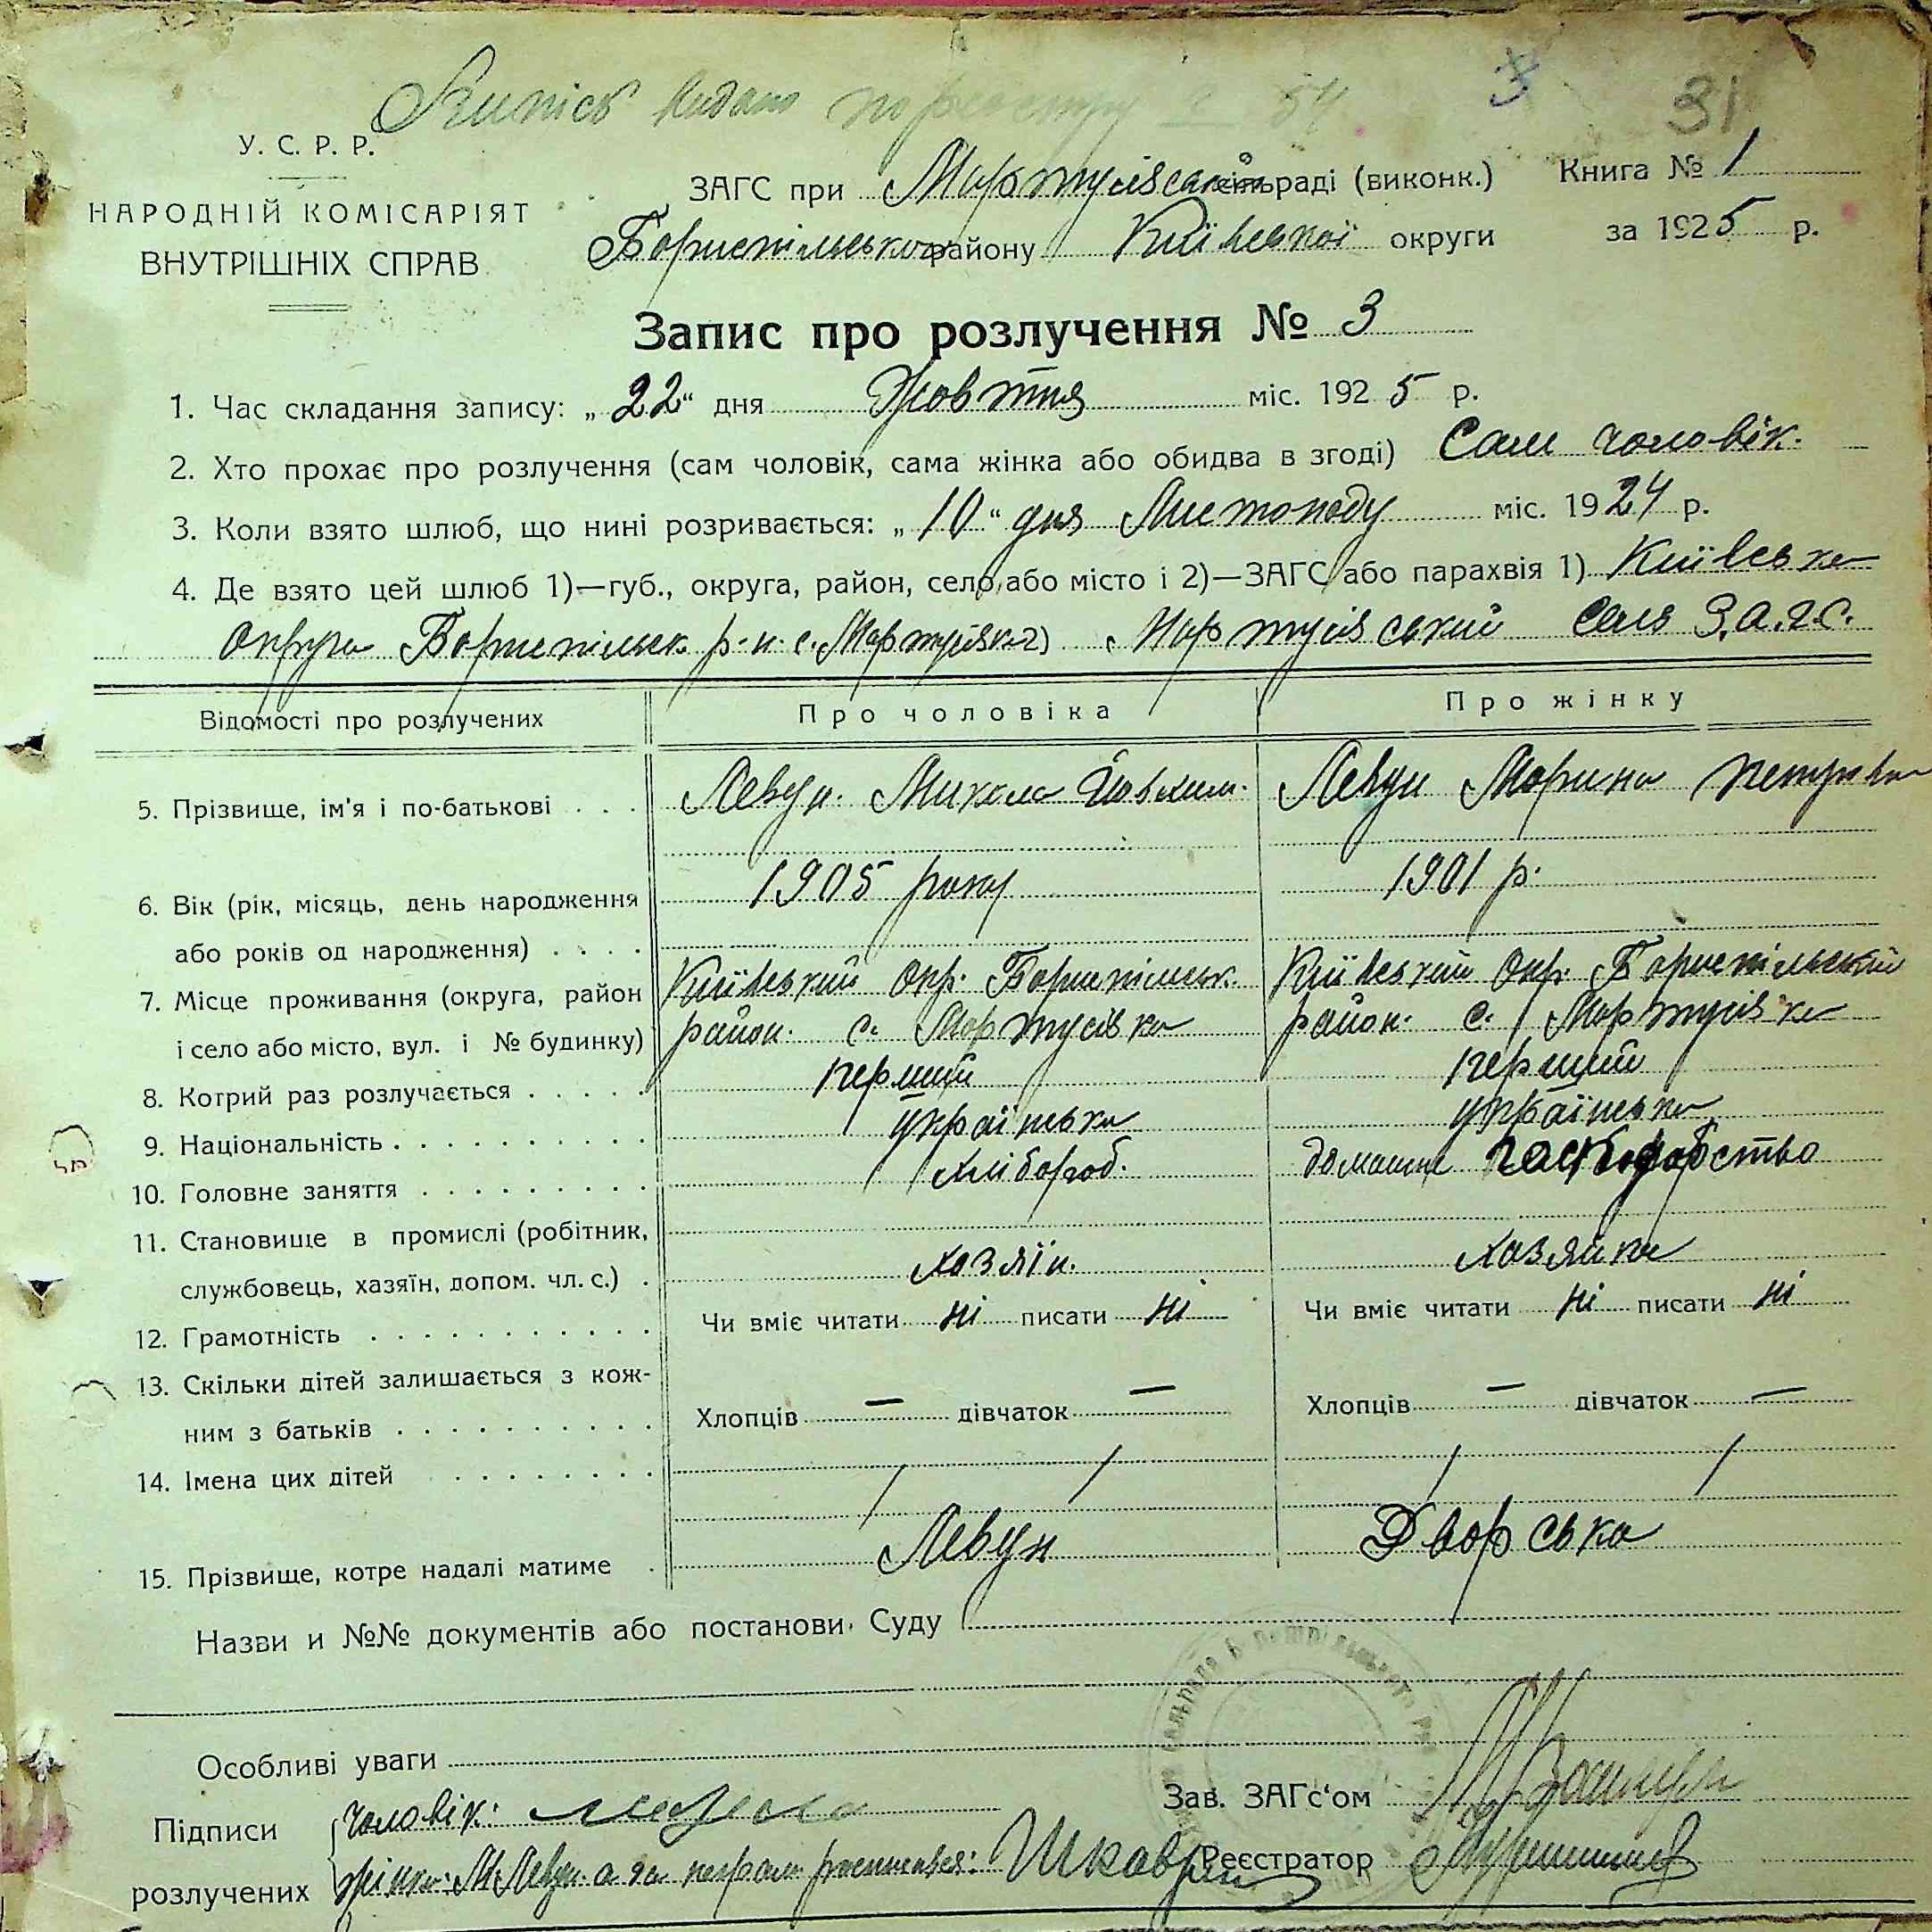 Випісь видано
3 31
У. С. Р. Р.
НАРОДНІЙ КОМІСАРІЯТ
ВНУТРІШНІХ СПРАВ
ЗАГС при Мартусівській сільраді (виконк.) Книга № 1
Бориспільського району Київської округи за 1925 р.
Запис про розлучення № 3
1. Час складання запису: „22“ дня Жовтня міс. 1925 р.
2. Хто прохає про розлучення (сам чоловік, сама жінка або обидва в згоді) Сам чоловік.
3. Коли взято шлюб, що нині розривається: „10“ дня Листопаду міс. 1924 р.
4. Де взято цей шлюб 1)—губ., округа, район, село або місто і 2)—ЗАГС або парахвія 1) Київська
округа Бориспільск. р-н с. Мартусівка 2) Мартусівський З.А.Г.С.
Відомості про розлучених Про чоловіка Про жінку
5. Прізвище, ім'я і по-батькові . . . Левун. Микола Йовхим. Левун Марина Петрівна
6. Вік (рік, місяць, день народження 1905 року 1901 р.
або років од народження) . . . .
7. Місце проживання (округа, район Київський Окр. Бориспільск. Київський Окр. Бориспільский
і село або місто, вул. і № будинку) район. с. Мартусівка район. с. Мартусівка
8. Котрий раз розлучається . . . . . перший перший
9. Національність . . . . . . . . . . українська українська
10. Головне заняття . . . . . . . . . хлібороб. домашнє господарство
11. Становище в промислі (робітник,
службовець, хазяїн, допом. чл. с.) . хозяїн. хозяйка
12. Грамотність . . . . . . . . . . . Чи вміє читати ні писати ні Чи вміє читати ні писати ні
13. Скільки дітей залишається з кож-
ним з батьків . . . . . . . . . . Хлопців — дівчаток — Хлопців — дівчаток —
14. Імена цих дітей . . . . . . . . .
15. Прізвище, котре надалі матиме . Левун Дворська
Назви и №№ документів або постанови Суду
Особливі уваги
Зав. ЗАГс'ом
Підписи чоловік:
розлучених жінка: М. Левун. а за неграм. росписався: Шкавр Реєстратор